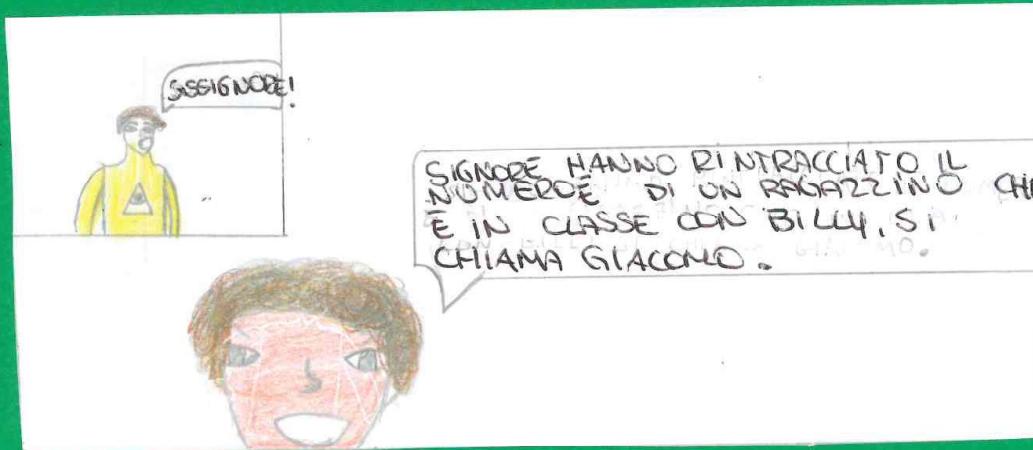 SISSIGNORE!
SIGNORE HANNO RINTRACCIATO IL
NUMERO È DI UN RAGAZZINO CHE
È IN CLASSE CON BILLY, SI
CHIAMA GIACOMO.